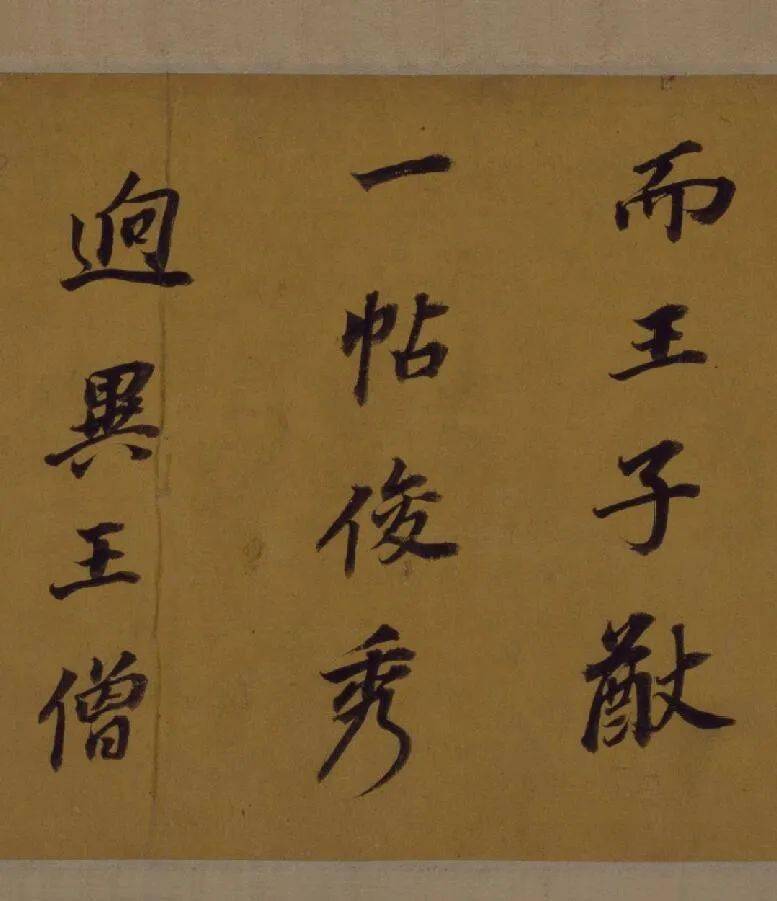 而王子猷
一帖俊秀
逈異王僧